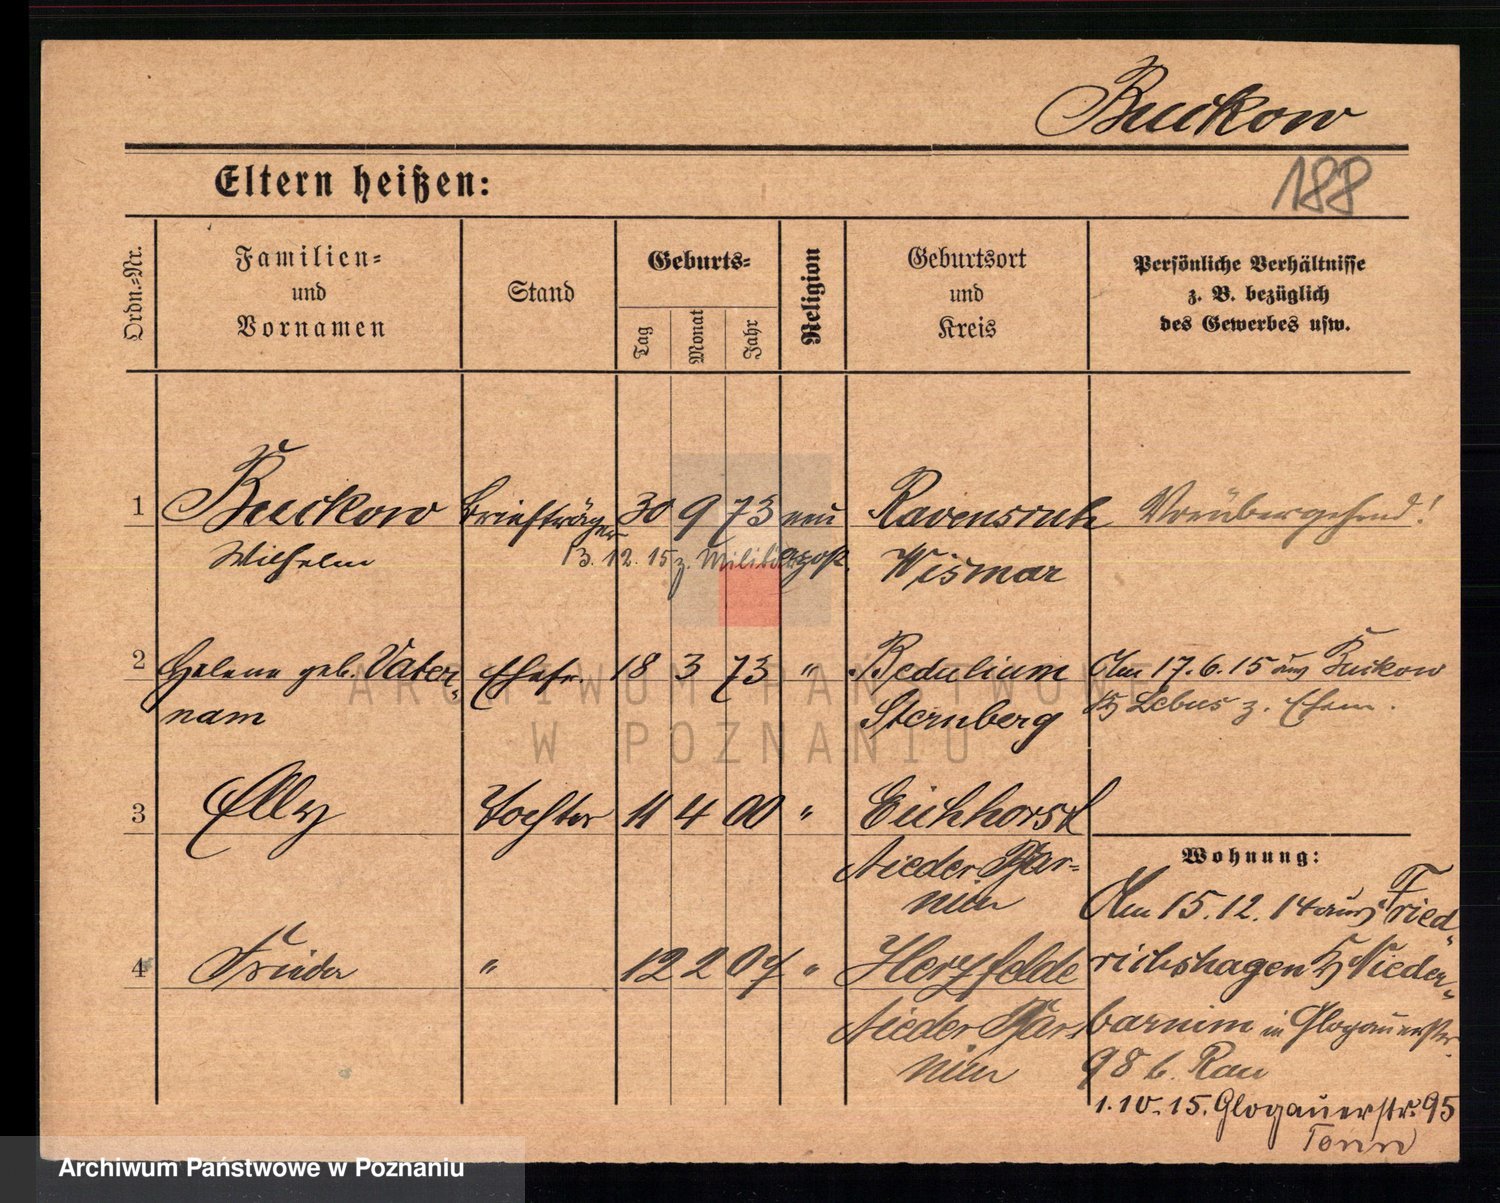 Buckow
Eltern heißen:
188
Ordn.-Nr.
Familien-
und
Vornamen
Stand
Geburts-
Tag
Monat
Jahr
Religion
Geburtsort
und
Kreis
Persönliche Verhältnisse
z. B. bezüglich
des Gewerbes usw.
1 Buckow Briefträger 30 9 73 Ravensruh Vorübergehend!
Wilhelm 13. 12. 15 z. Militär Wismar
2 Helene geb. Vater- Ehefr. 18 3 73 " Am 17.6.15 aus Buckow
nam Sternberg Lebus z. Ehem.
3 Elly Tochter 11 4 00 " Eichhorst
Nieder Bar-
nim
Wohnung:
Am 15.12.14 aus Fried-
4 Frieda " 12 2 07 " Herzfelde richshagen Nieder-
Nieder Bar- barnim in Glogauerstr.
nim 98 b. Rau
1.10.15. Glogauerstr. 95
Tonn
ARCHIWUM PAŃSTWOWE
W POZNANIU
Archiwum Państwowe w Poznaniu